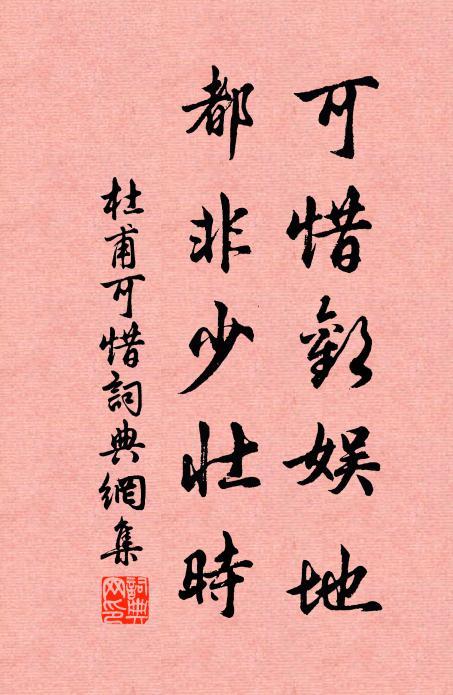 可惜歡娛地
都非少壯時
杜甫可惜詞典網集
詞典
网印